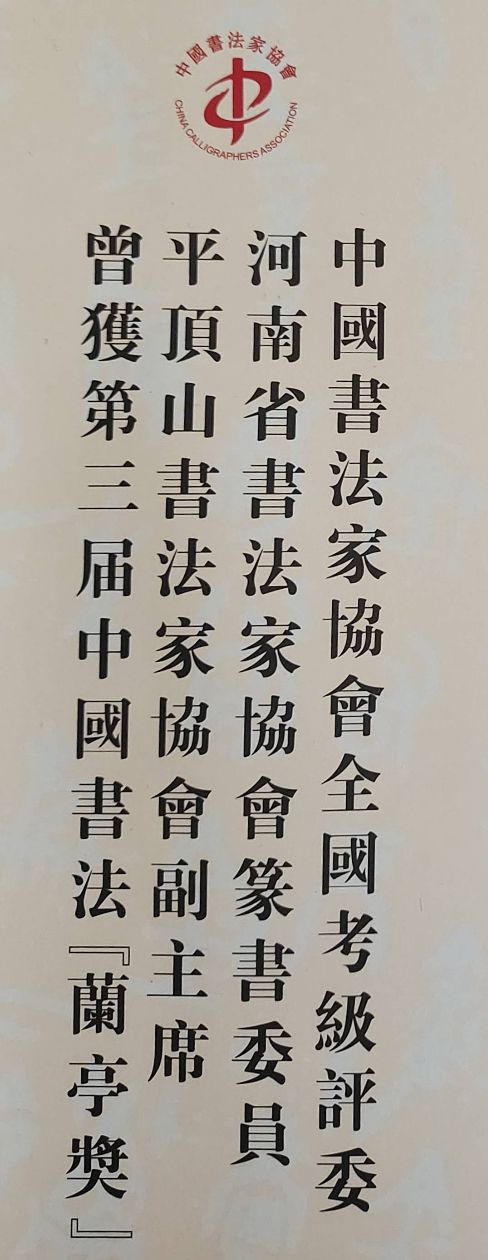 中國書法家協會
CHINA CALLIGRAPHERS ASSOCIATION
中國書法家協會全國考級評委
河南省書法家協會篆書委員
平頂山書法家協會副主席
曾獲第三届中國書法『蘭亭獎』